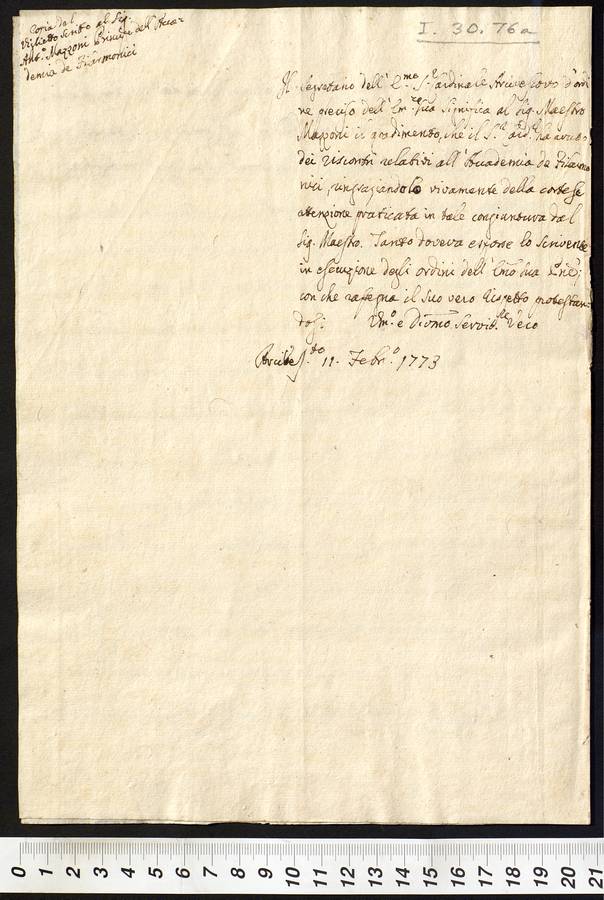 Copia del
Viglietto scritto al Sig.
Ant.o Mazzoni Principe dell'Acca-
demia de Filarmonici
I. 30. 76a
Il Segretario dell'E.mo S.r Cardinale Arcivescovo d'ordi
ne preciso dell'Em.za Sua significa al Sig. Maestro
Mazzoni il gradimento, che il S.r Card.e ha avuto
dei riscontri relativi all'Accademia de Filarmo
nici, ringraziandolo vivamente della cortese
attenzione praticata in tale congiuntura dal
Sig. Maestro. Tanto doveva esporre lo scrivente
in esecuzione degli ordini dell'Em.o Sua
con che rassegna il suo vero rispetto protestan-
dosi: e Divmo Servid.re Vero
11. Febr.o 1773
0 1 2 3 4 5 6 7 8 9 10 11 12 13 14 15 16 17 18 19 20 21